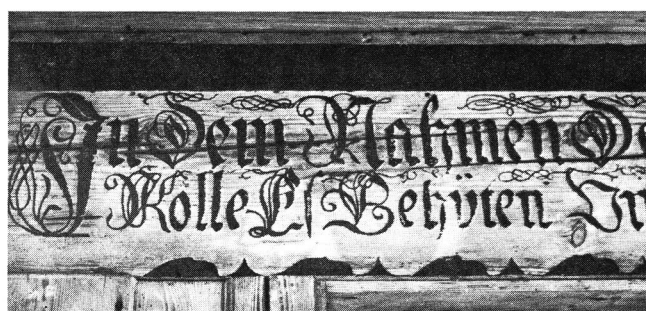 In Dem Nahmen De
Wolle Eſ Behÿten Vn